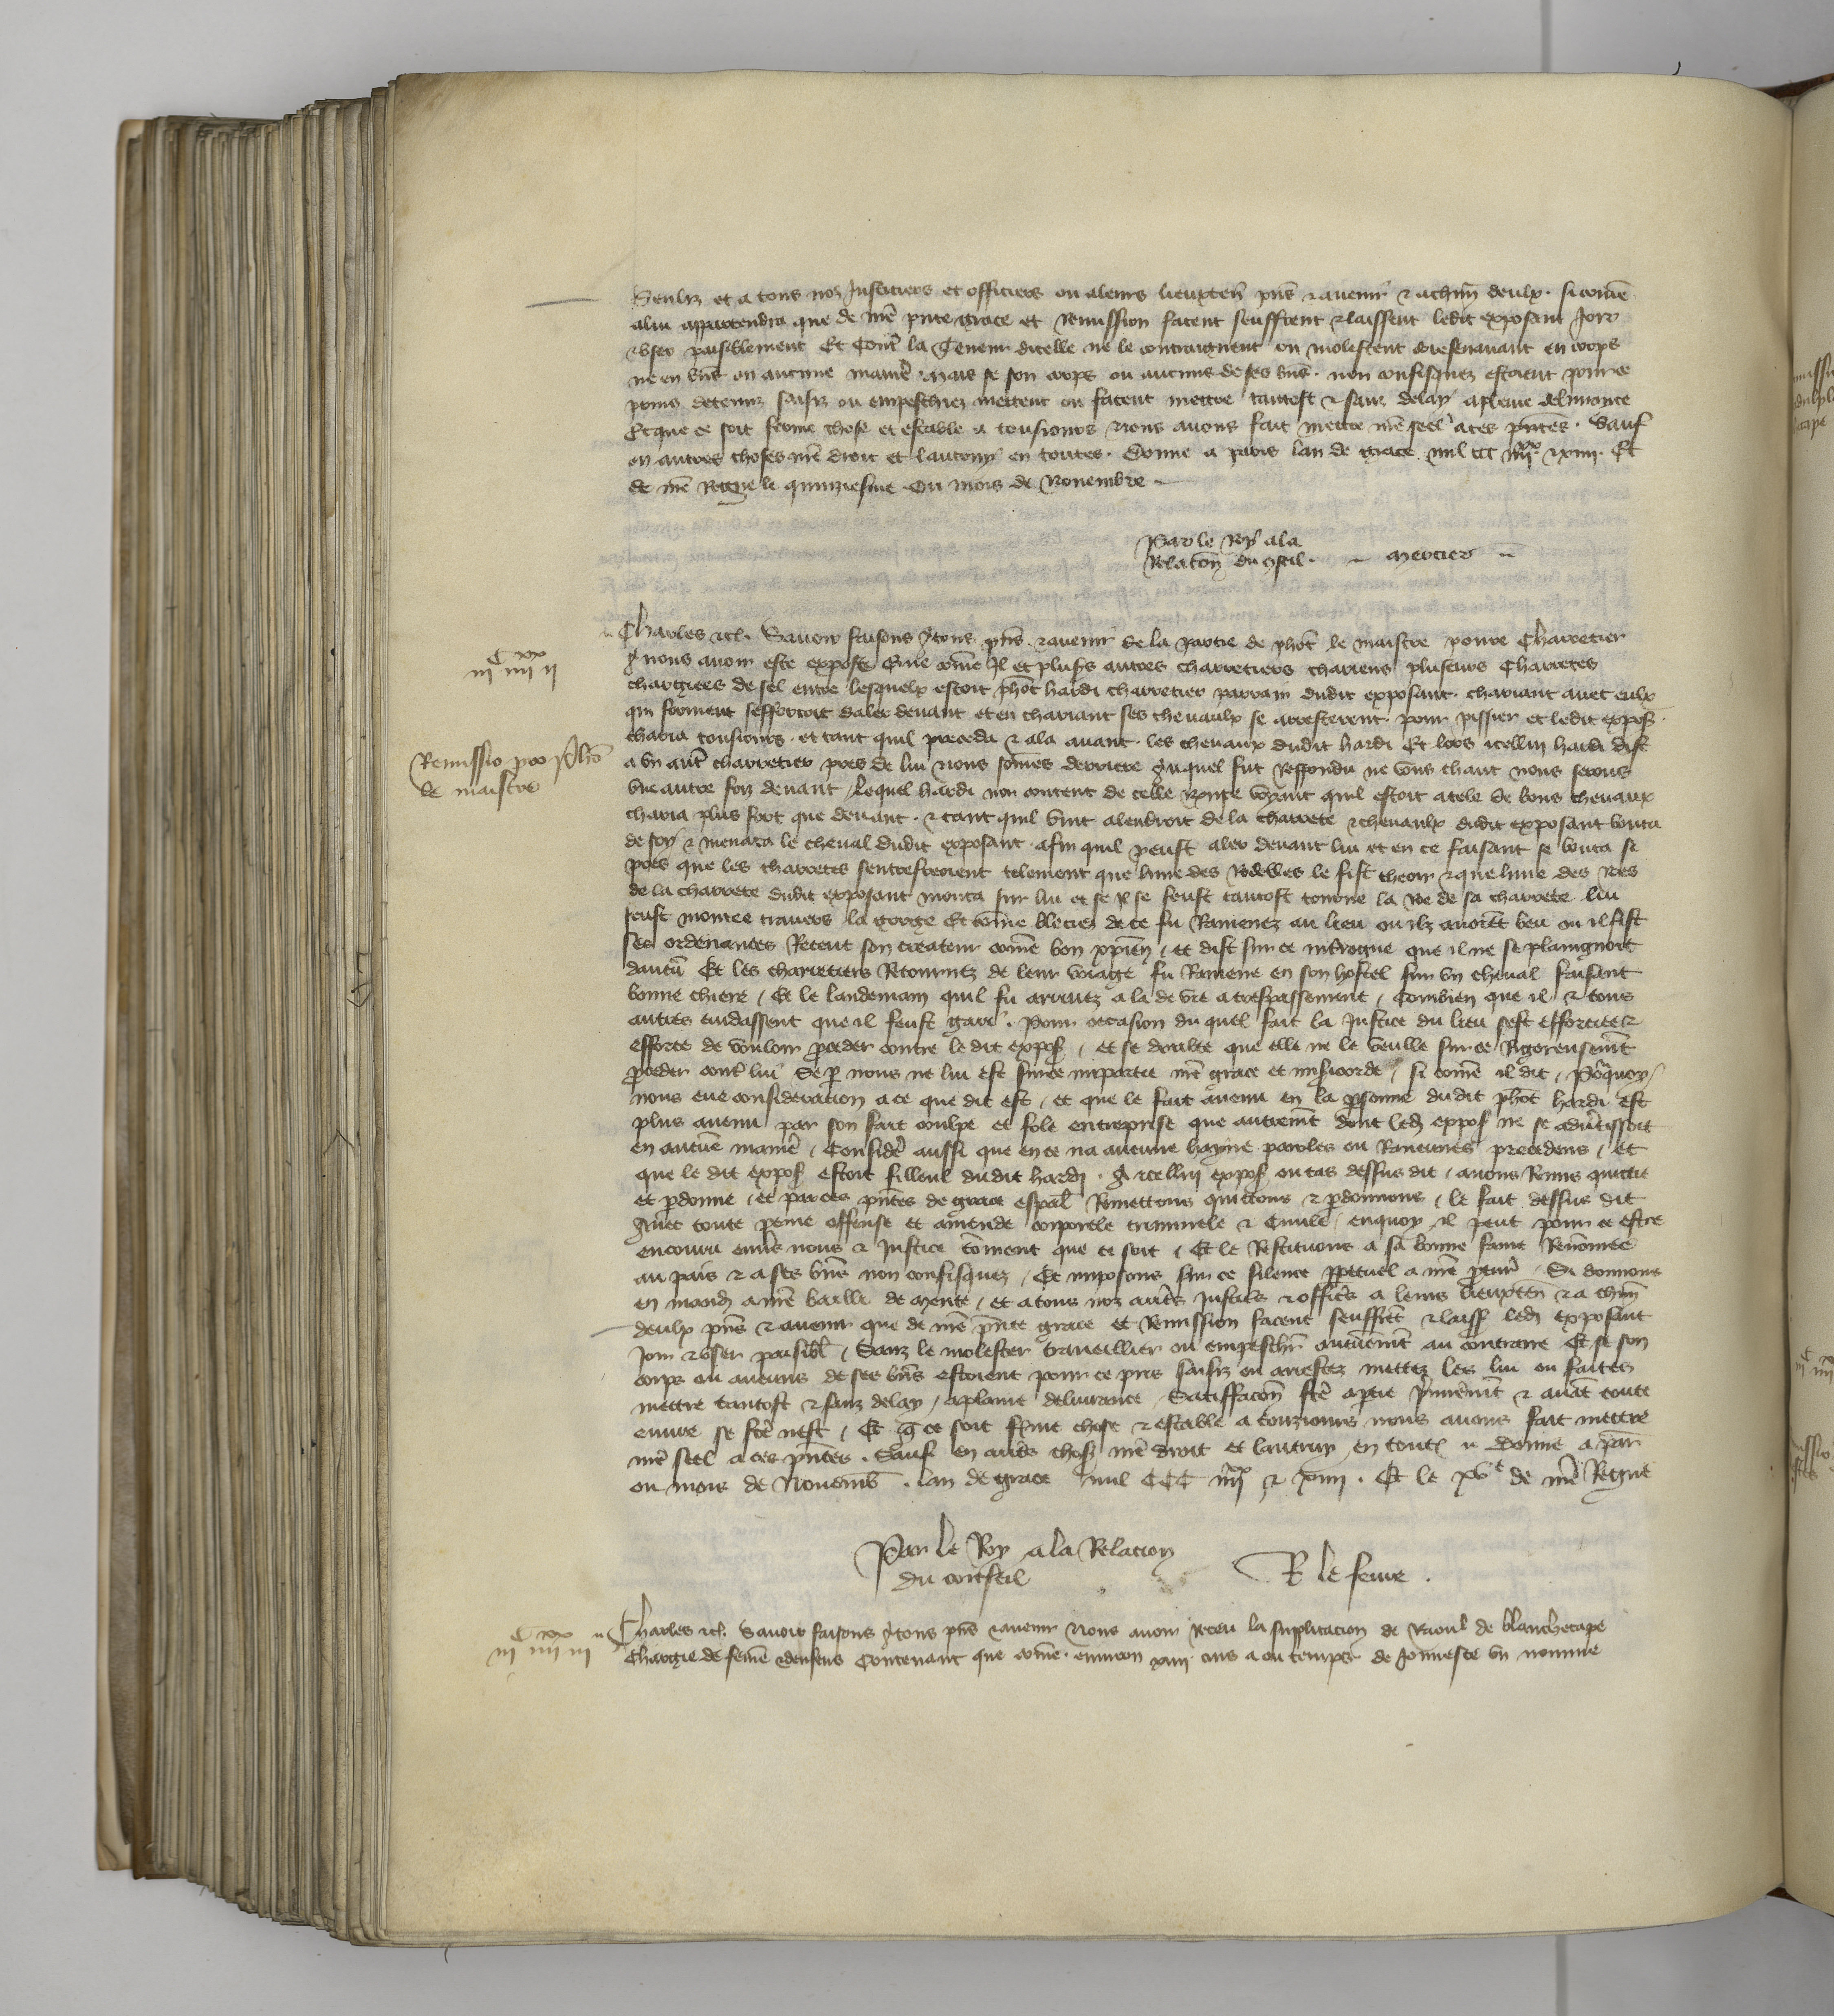 Senliz et a tous noz Justiciers et officiers ou a leurs lieuxten̄ p̄ns & auenir & a chūn deulx. si com̄e
a lui appartendra que de n̄re p̄nte grace et remission facent seuffrent & laissent ledit exposant Joir
& vser paisiblement Et cont̄ la teneur dicelle ne le contraignent ou molestent doresenauant en corps
ne en biēs en aucune manie᷑. mais se son corps ou aucuns de ses biēs. non confisquez estoient pour ce
prins detenuz saisiz ou empeschiez mettent ou facent mettre tantost & sanz delay a pleine deliurance
Et que ce soit ferme chose et estable a tousiours Nous auons fait mettre n̄re seel a ces p̄ntes. Sauf
en autres choses n̄re droit et lautruy en toutes. Donne a paris lan de grace mil ccc iiiixx & xiiii. Et
de n̄re Regne le quinziesme Ou mois de Nouembre
Par le Roy a la
Relacōn du 9seil. Mercier
Charles &c. Sauoir faisons a tous p̄ns & auenir de la partie de ph̄ot le maistre poure Charretier
A nous auoir este expose Que com̄e Il et plus̄s autres charretiers chariens plusieurs Charretes
chargiees de sel entre lesquelx estoit ph̄ot hardi charretier parrain dudit exposant. chariant auec eulx
qui forment sefforcoit daler deuant et en chariant ses cheuaulx se arresterent pour pissier et ledit expos̄.
charia tousiours. et tant quil preceda & ala auant. les cheuaux dudit hardi Et lors icellui hardi dist
a vn aut̄ charretier pres de lui nous som̄es derriere Auquel fut respondu ne vous chaut nous serons
vne autre foiz deuant, Lequel hardi non content de celle rn̄ce voyant quil estoit atele de bons cheuaux
charia plus fort que deuant. & tant quil vint a lendroit de la charrete & cheuaulx dudit exposant bouta
de soy & menaca le cheual dudit exposant. afin quil peust aler deuant lui et en ce faisant se bouta si
pres que les charretes sentrefreoient telement que lune des Roes le fist cheoir & que lune des Roes
de la charrete dudit exposant monta sur lui et se Il se feust tantost tourne la Roe de sa charrete lui
feust montee trauers la gorge Et com̄e bleciez de ce fu Ramenez au lieu ou ilz auoiēt beu ou il fist
ses ordenances Receut son createur com̄e bon xp̄ien, et dist sur ce interrogue que il ne se plaingnoit
daucū Et les charretiers Retournez de leur voiage fu Ramene en son hostel sur vn cheual faisant
bonne chiere, Et le landemain quil fu arriuez ala de vie a trespassement, Combien que il & tous
autres cuidassent que il feust gari. Pour occasion du quel fait la Justice du lieu sest efforciee &
efforce de vouloir p̄ceder contre le dit expos̄, et se doubte que elle ne le veulle sur ce Rigoreusem̄t
p̄ceder cont̄ lui Se p̄ nous ne lui est sur ce impartie n̄re grace et misericorde, si com̄e il dit, Pourquoy
nous eue consideration a ce que dit est, et que le fait auenu en la p̄sonne dudit ph̄ot hardi est
plus auenu par son fait coulpe et fole entreprise que autrem̄t dont led̄ expos̄ ne se aduertissoit
en aucūe manie᷑, Conside᷑ aussi que en ce na aucune hayne paroles ou Rancunes precedens, et
que le dit expos̄ estoit filleul dudit hardi. A icellui expos̄ ou cas dessus dit, auons Remis quictie
et p̄donne, et par ces p̄ntes de grace esp̄al Remettons quictons & p̄donnons, le fait dessus dit
Auec toute peine offense et amende corporele criminele & Ciuile, en quoy il peut pour ce estre
encouru enu̅s nous & Justice com̄ent que ce soit, Et le Restituons a sa bonne fame Renom̄ee
au pais & a ses biēs non confisquez, Et imposons sur ce silence p̄petuel a n̄re p̄cur̄, Si donnons
en mand̄ a n̄re bailli de Mente, et a tous noz autr̄s Justic̄s & offic̄s a leurs lieuxten̄ & a chūn
deulx p̄ns & auenir que de n̄re p̄nte grace et Remission facent seuffrēt & laiss̄ led̄ exposant
Joir & vser paisibl̄, Sanz le molester trauaillier ou empescher aucunem̄t au contraire Et se son
corps ou aucuns de ses biēs estoient pour ce pris saisiz ou arrestez mettez les lui ou faites
mettre tantost & sanz delay, a plaine deliurance, Satiffacōn fc̄e a p̄tie p̄mierem̄t & auāt toute
euure se fc̄e nest, Et q̄ ce soit ferme chose & estable a tourziours nous auons fait mettre
n̄re seel a ces p̄ntes. Sauf en autr̄s chos̄ n̄re droit et lautruy en tout̄. Donne a par̄
ou mois de Nouemb̄. lan de grace mil CCC iiiixx & xiiii. Et le xve de n̄re Regne
Par le Roy a la Relacion
du conseil R le feure.
Charles &c. Sauoir faisons a tous p̄ns & auenir Nous auoir receu la supplicacion de Raoul de blanchecape
Chargie de fem̄e & denfens Contenant que com̄e. enuiron xiiii ans a ou temps de Jonnesce vn nomme
iiic iiiixx ii
Remissio pro ph̄o
le maistre
iiic iiiixx iii